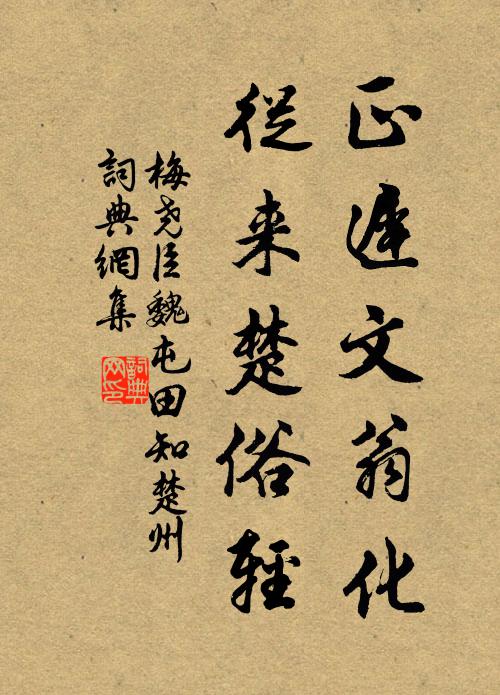 正遲文翁化
從来楚俗輕
梅尧臣魏屯田知楚州
詞典網集
詞典网印